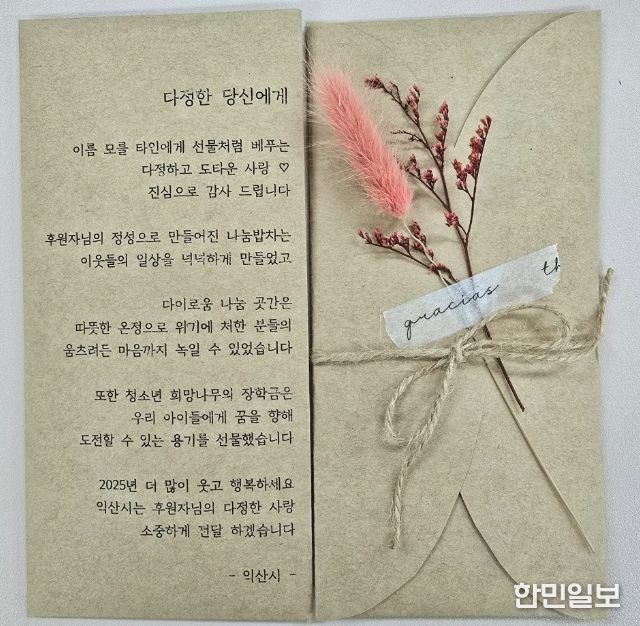 다정한 당신에게
이름 모를 타인에게 선물처럼 베푸는
다정하고 도타운 사랑 ♡
진심으로 감사 드립니다
후원자님의 정성으로 만들어진 나눔밥차는
이웃들의 일상을 넉넉하게 만들었고
다이로움 나눔 곳간은
따뜻한 온정으로 위기에 처한 분들의
움츠려든 마음까지 녹일 수 있었습니다
또한 청소년 희망나무의 장학금은
우리 아이들에게 꿈을 향해
도전할 수 있는 용기를 선물했습니다
2025년 더 많이 웃고 행복하세요
익산시는 후원자님의 다정한 사랑
소중하게 전달 하겠습니다
- 익산시 -
gracias th
한민일보